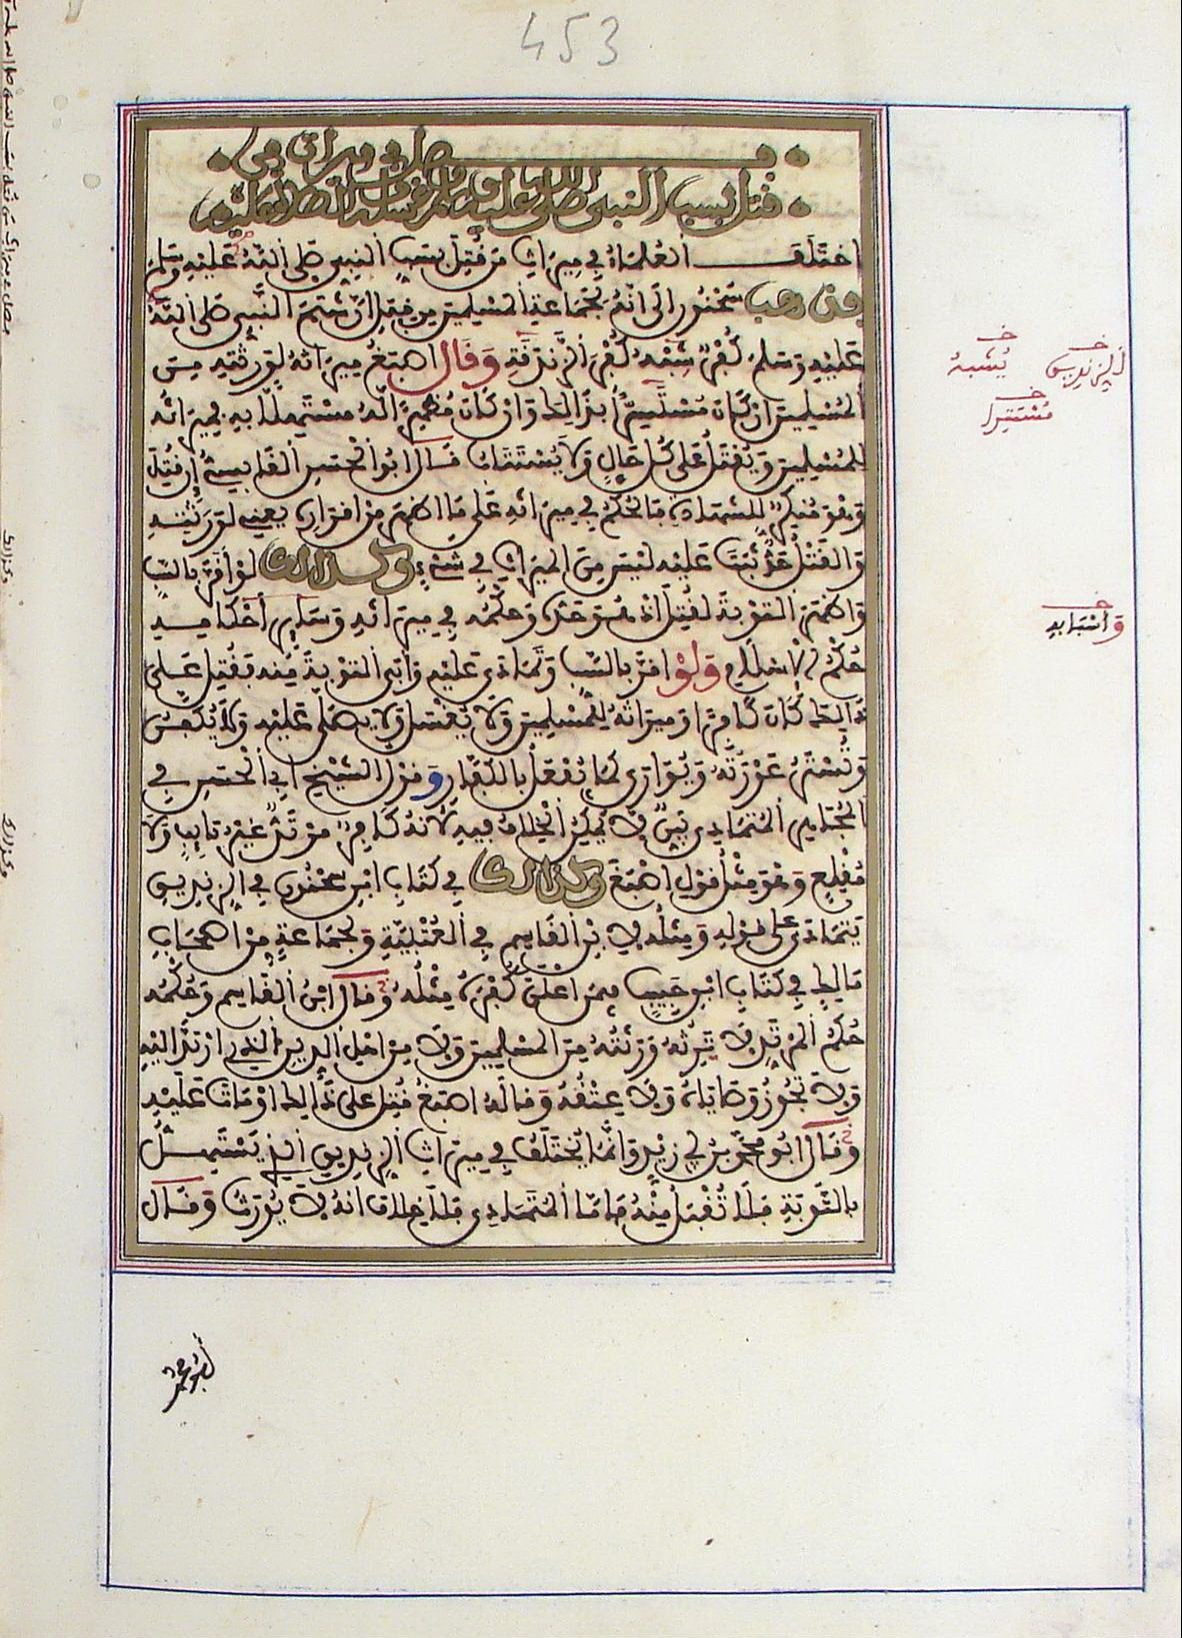 453
فصل في ميراث من
قتل بسب النبي صلى الله عليه وسلم وغسله والصلاة عليه
اختلف العلماء في ميراث من قتل بسب النبي صلى الله عليه وسلم
فذهب سحنون إلى أنه لجماعة المسلمين من قبل أن شتم النبي صلى الله
عليه وسلم كفر يشبه كفر الزندقة وقال أصبغ ميراثه لورثته من
المسلمين إن كان مستسرا بذلك وإن كان مظهرا له مستهلا به فميراثه
للمسلمين ويقتل على كل حال ولا يستتاب قال أبو الحسن القابسي إن قتل
وهو منكر للشهادة فالحكم في ميراثه على ما أظهر من إقراره يعني لورثته
والقتل حد ثبت عليه ليس من الميراث في شيء وكذلك لو أقر بالسب
وأظهر التوبة لقتل إذ هو حده وحكمه في ميراثه وسائر أحكامه
حكم الإسلام ولو أقر بالسب وتمادى عليه وأبى التوبة منه فقتل على
ذلك كان كافرا وميراثه للمسلمين ولا يغسل ولا يصلى عليه ولا يكفن
وتستر عورته ويوارى كما يفعل بالكفار وقول الشيخ أبي الحسن في
المجاهر المتمادي بين لا يمكن الخلاف فيه لأنه كافر مرتد غير تائب ولا
مقلع وهو مثل قول أصبغ وكذلك في كتاب ابن سحنون في الزنديق
يتمادى على قوله ومثله لابن القاسم في العتبية ولجماعة من أصحاب
مالك في كتاب ابن حبيب فيمن أعلن كفره مثله وقال ابن القاسم وحكمه
حكم المرتد لا يرثه ورثته من المسلمين ولا من أهل الدين الذي ارتد إليه
ولا تجوز وصاياه ولا عتقه وقاله أصبغ قتل على ذلك أو مات عليه
وقال أبو محمد بن أبي زيد وإنما يختلف في ميراث الزنديق الذي يستهل
بالتوبة فلا تقبل منه فأما المتمادي فلا خلاف أنه لا يورث وقال
خ
الزنديق
خ
يشبه
خ
مستترا
خ
وأشباهه
أبو محمد